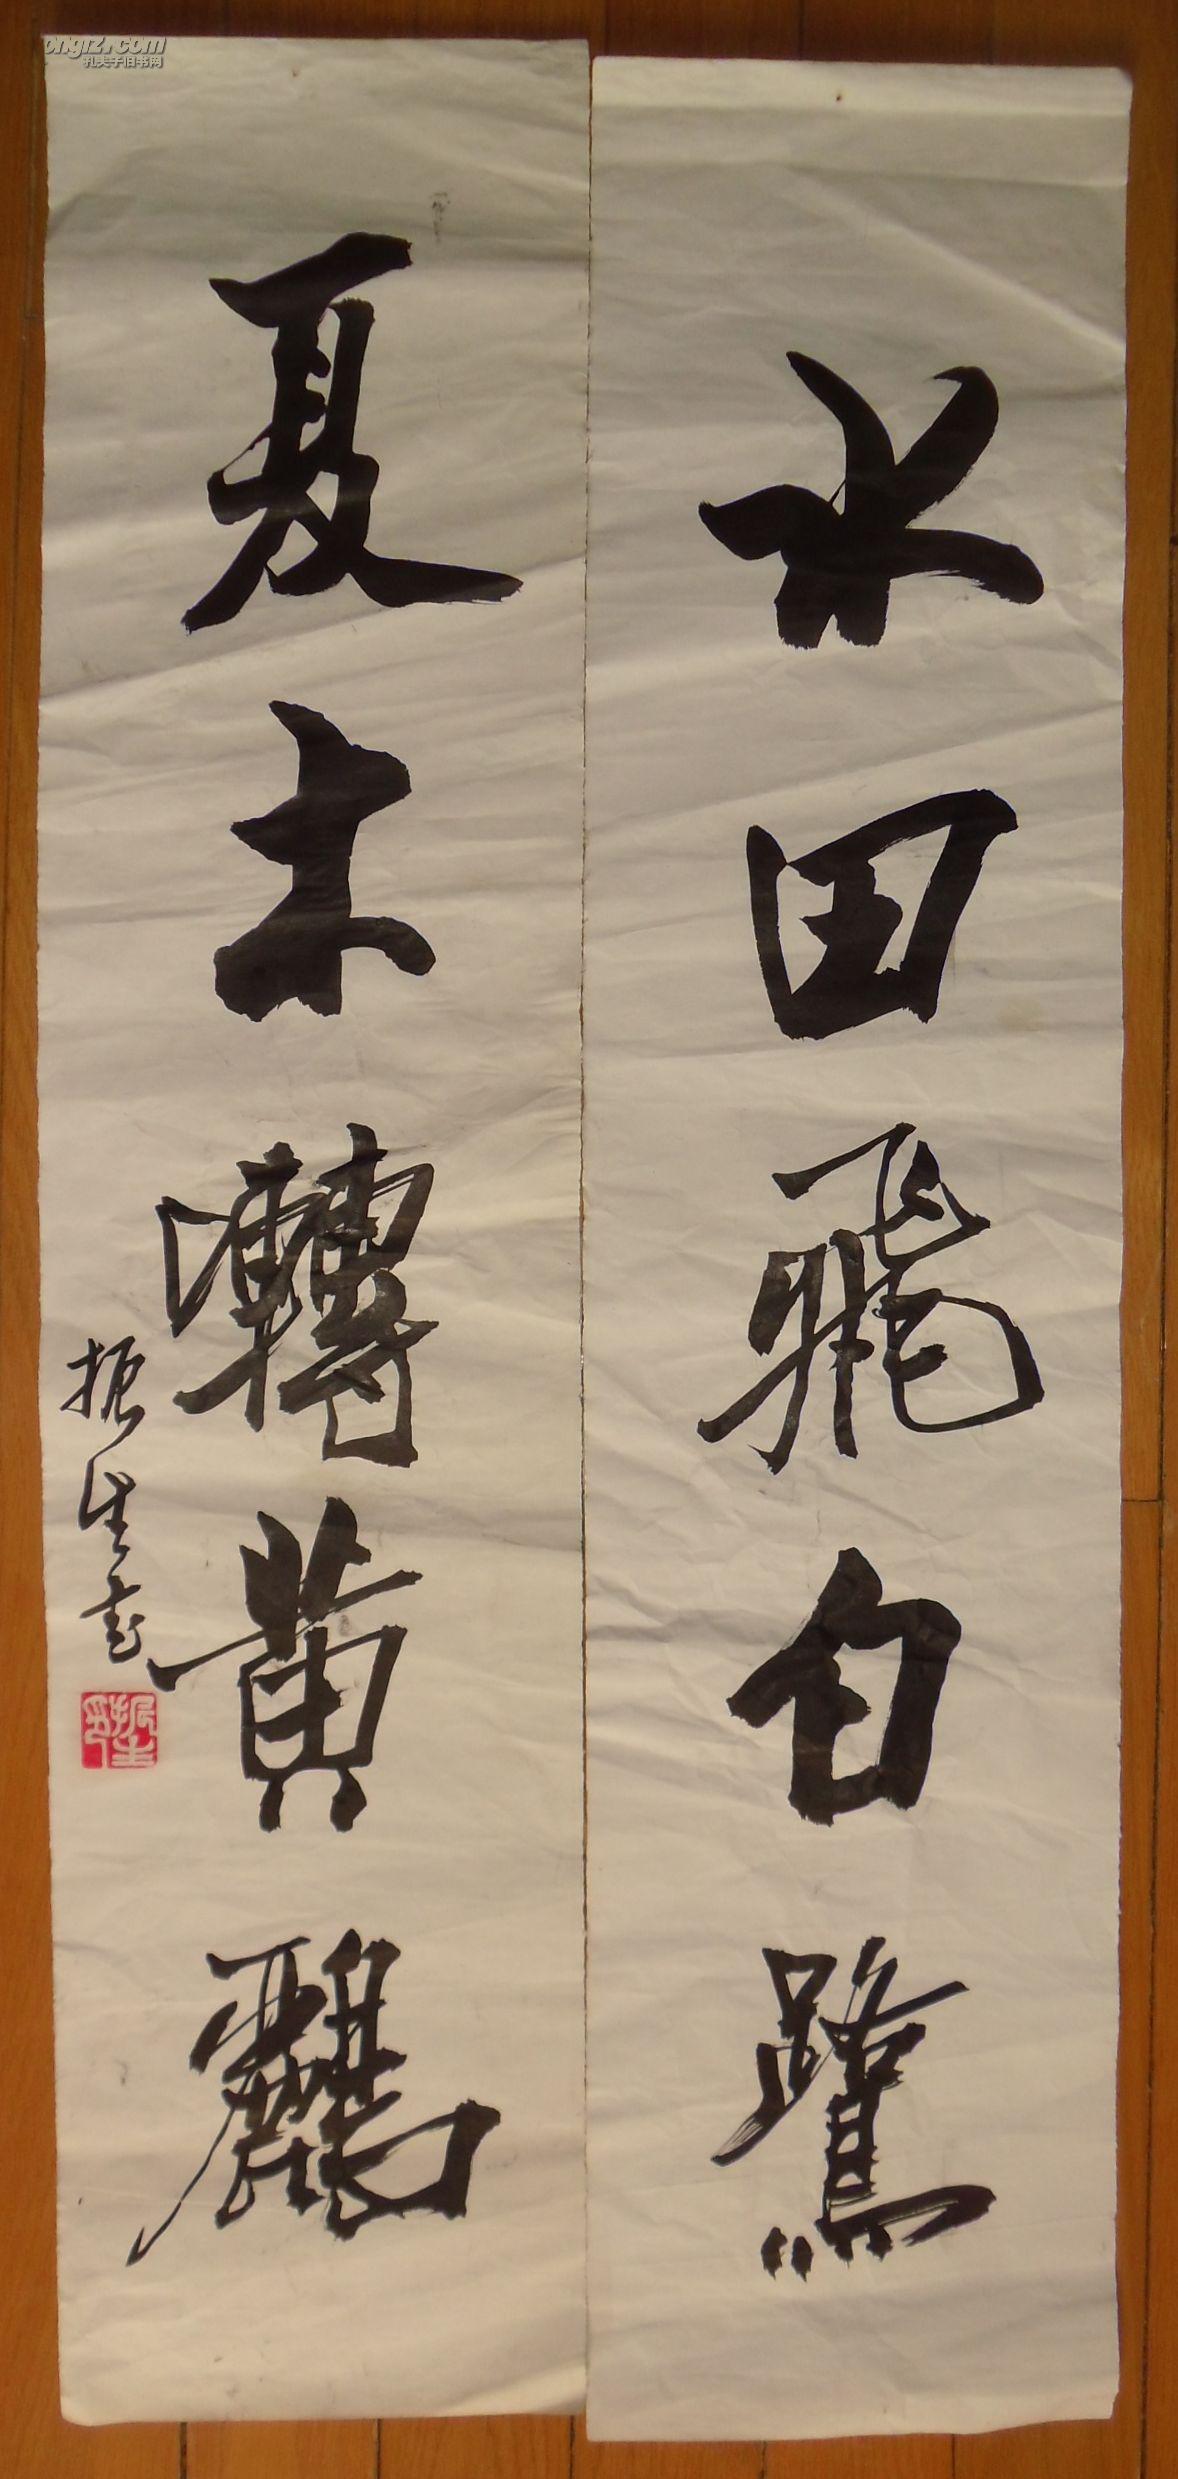 水田飛白鷺
夏木轉黄鸝
振生书
振生印
kongfz.com
孔夫子旧书网